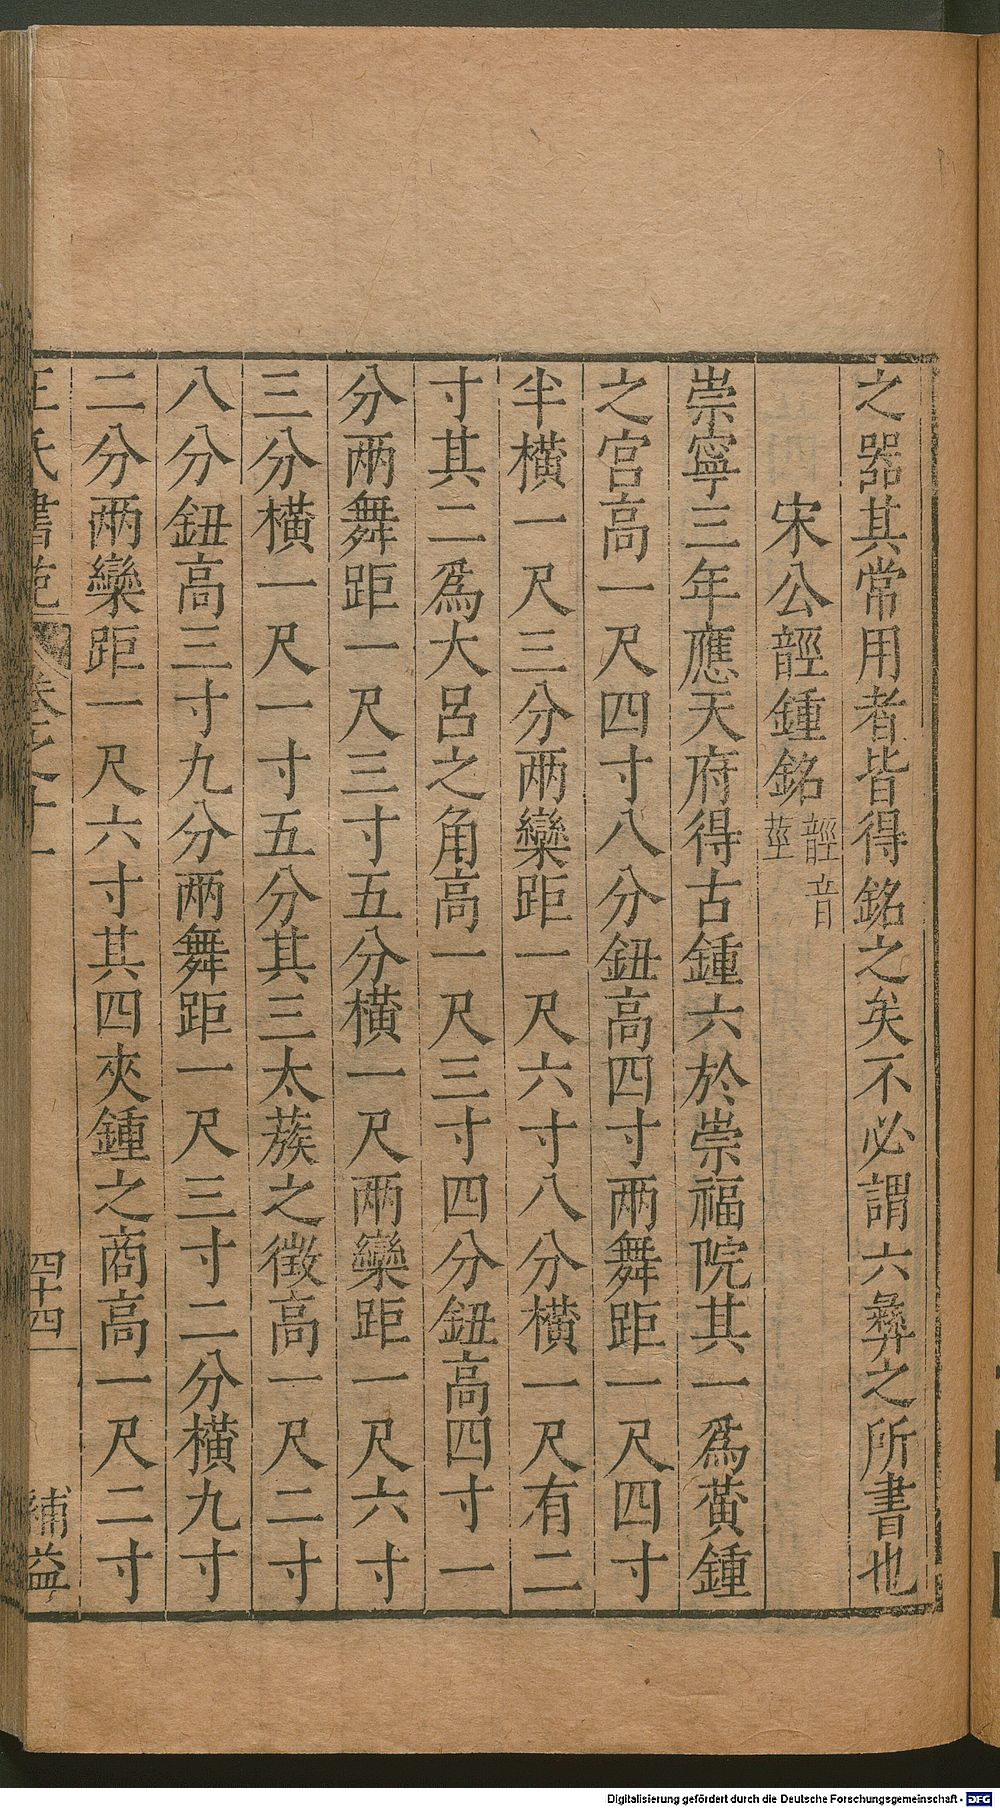 之器其常用者皆得銘之矣不必謂六彞之所書也
宋公䪫鍾銘䪫音莖
崇寧三年應天府得古鍾六於崇福院其一爲黃鍾
之宮高一尺四寸八分鈕高四寸兩舞距一尺四寸
半橫一尺三分兩欒距一尺六寸八分橫一尺有二
寸其二爲大呂之角高一尺三寸四分鈕高四寸一
分兩舞距一尺三寸五分橫一尺兩欒距一尺六寸
三分橫一尺一寸五分其三太蔟之徵高一尺二寸
八分鈕高三寸九分兩舞距一尺三寸二分橫九寸
二分兩欒距一尺六寸其四夾鍾之商高一尺二寸
王氏書苑
卷之十一
四十四
補益
Digitalisierung gefördert durch die Deutsche Forschungsgemeinschaft - DFG